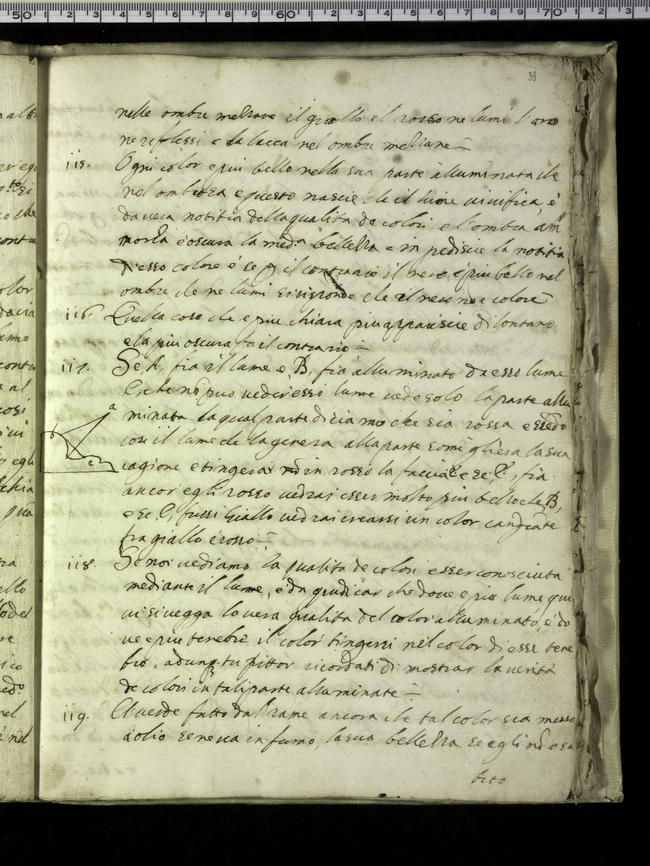 38
nelle ombre mezzane il giallo e l rosso ne lumi l oro
ne reflessi e la lacca nel ombre mezzane
115. Ogni color e piu bello nella sua parte alluminata che
nel ombrosa e questo nascie che il lume vivifica, e
da vera notitia della qualita de colori e l ombra am
morza e oscura la med.a bellezza e in pedisscie la notitia
d esso colore e se p il contrario il nero e piu bello nel
ombre che ne lumi si risponde che el nero no e colore
116. Quella cosa che e piu chiara piu appariscie di lontano
e la piu oscura fa il contrario
117. Se A, fia il lume e, B, fia alluminato da esso lume
E che no puo veder esso lume vede solo la parte allu
minata la qual parte diciamo che sia rossa e essedo
cosi il lume che la genera alla parte somigliera la sua
cagione e tingera in rosso la faccia e se C, fia
ancor egli rosso vedrai esser molto piu bello che B,
e se C, fussi giallo vedrai crearsi un color cangiate
fra giallo e rosso
a
b
c
118. Se noi vediamo la qualita de colori esser conosciuta
mediante il lume, e da giudicar che dove e piu lume qui
vi si vegga la vera qualita del color alluminato, e do
ve e piu tenebre il color tingersi nel color di esse tene
bre. adunq. tu pittor ricordati di mostrar la verita
de colori in tali parte alluminate
119. Il verde fatto dal rame ancora che tal color sia messo
a olio se ne va in fumo, la sua bellezza se egli no e su
bito